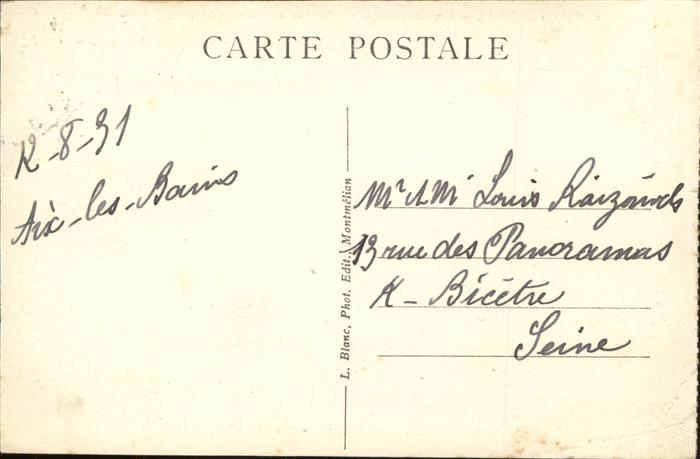 CARTE POSTALE
12-8-31
Aix-les-Bains
L. Blanc, Phot. Edit., Montmélian
Mr & Me Louis
13 rue des Panoramas
K-Bicêtre
Seine